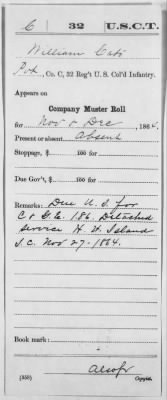 C 32 U.S.C.T.
William
Pvt, Co. C, 32 Reg't U. S. Col'd Infantry.
Appears on
Company Muster Roll
for Nov & Dec, 1864.
Present or absent Absent
Stoppage, $ 100 for
Due Gov't, $ 100 for
Remarks: Due U.S. for
C & G.E. 1.86 Detached
service H. H. Island
S.C. Nov 27-1864.
Book mark:
(359) Copyist.